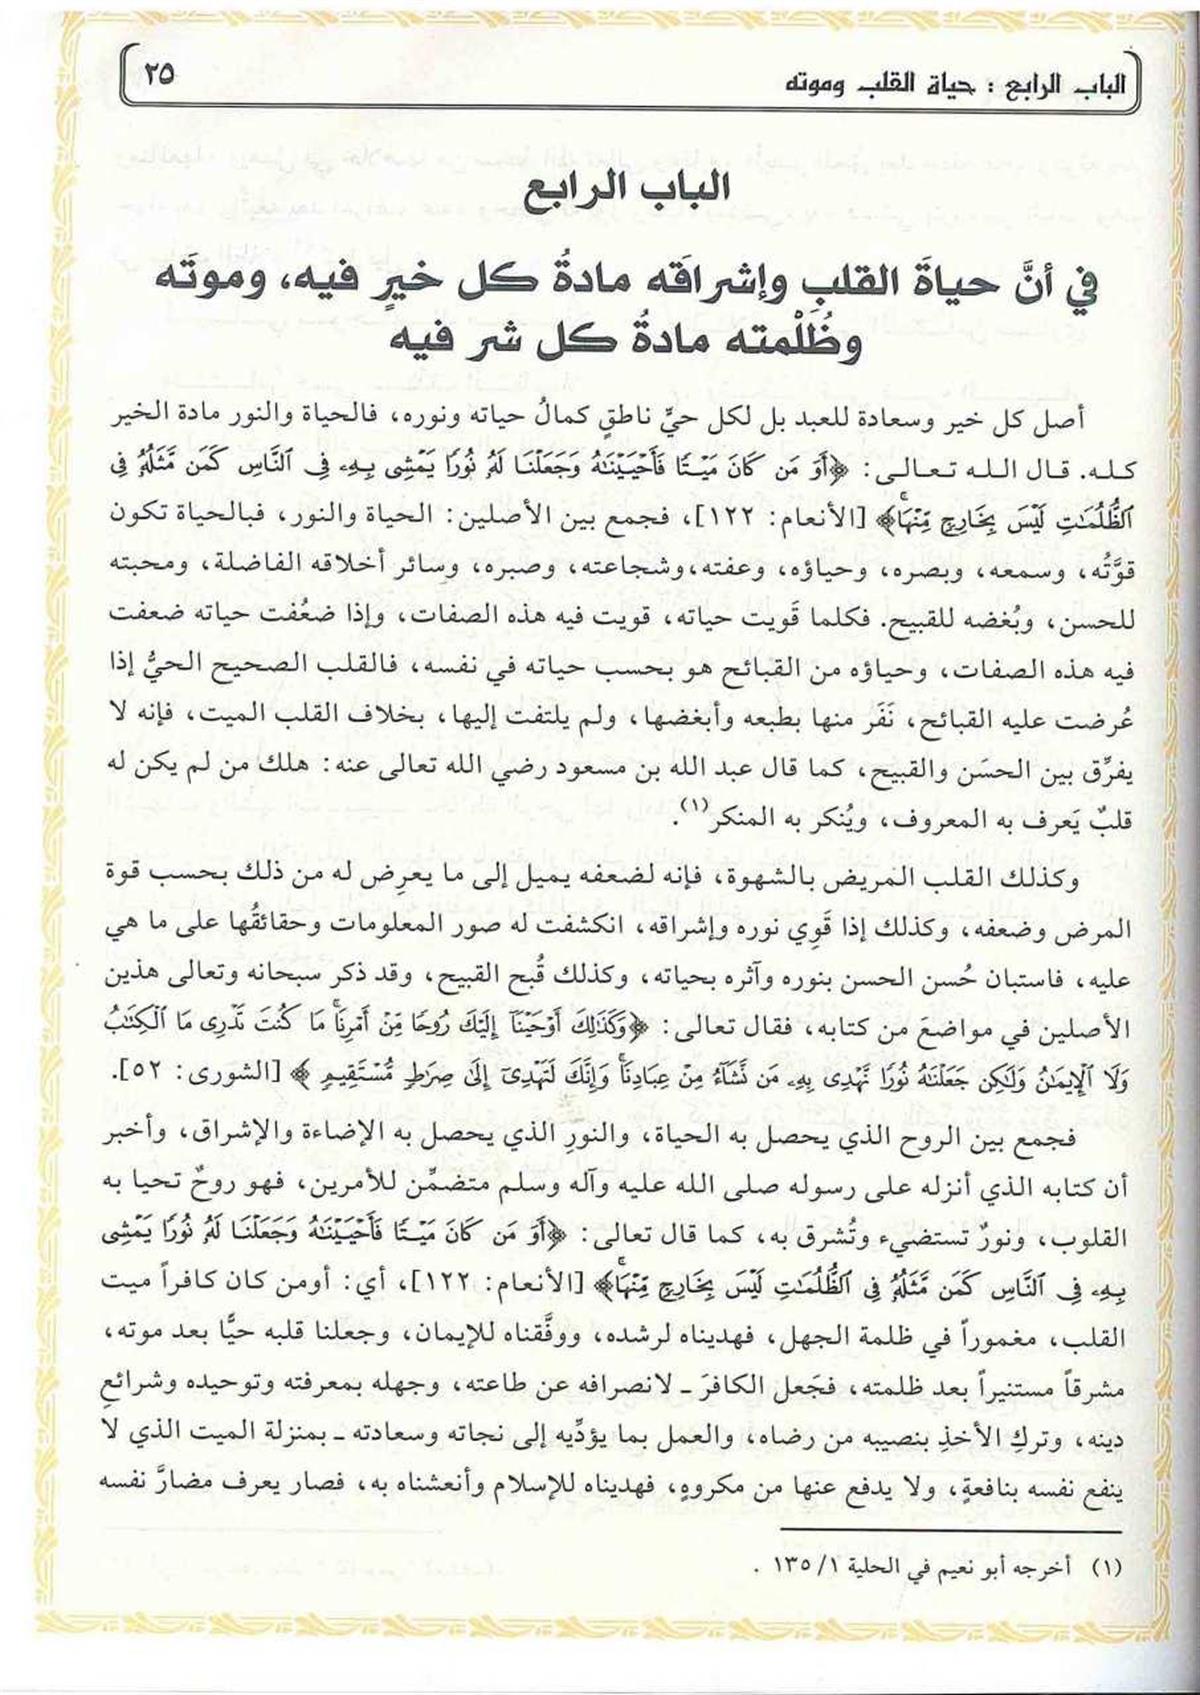 الباب الرابع : حياة القلب وموته
٢٥
الباب الرابع
في أنَّ حياةَ القلبِ وإشراقَه مادةُ كل خيرٍ فيه، وموتَه
وظُلْمته مادةُ كل شر فيه
أصل كل خير وسعادة للعبد بل لكل حيٍّ ناطقٍ كمالُ حياته ونوره، فالحياة والنور مادة الخير
كله. قال الله تعالى: ﴿أَوَ مَن كَانَ مَيْتًا فَأَحْيَيْنَاهُ وَجَعَلْنَا لَهُ نُورًا يَمْشِى بِهِۦ فِى النَّاسِ كَمَن مَّثَلُهُ فِى
الظُّلُمَاتِ لَيْسَ بِخَارِجٍ مِّنْهَا﴾ [الأنعام: ١٢٢]، فجمع بين الأصلين: الحياة والنور، فبالحياة تكون
قوَّتُه، وسمعه، وبصره، وحياؤه، وعفته،وشجاعته، وصبره، وسائر أخلاقه الفاضلة، ومحبته
للحسن، وبُغضه للقبيح. فكلما قَويت حياته، قويت فيه هذه الصفات، وإذا ضعُفت حياته ضعفت
فيه هذه الصفات، وحياؤه من القبائح هو بحسب حياته في نفسه، فالقلب الصحيح الحيُّ إذا
عُرضت عليه القبائح، نَفَر منها بطبعه وأبغضها، ولم يلتفت إليها، بخلاف القلب الميت، فإنه لا
يفرِّق بين الحسَن والقبيح، كما قال عبد الله بن مسعود رضي الله تعالى عنه: هلك من لم يكن له
قلبٌ يَعرف به المعروف، ويُنكر به المنكر(١).
وكذلك القلب المريض بالشهوة، فإنه لضعفه يميل إلى ما يعرِض له من ذلك بحسب قوة
المرض وضعفه، وكذلك إذا قَوِي نوره وإشراقه، انكشفت له صور المعلومات وحقائقُها على ما هي
عليه، فاستبان حُسن الحسن بنوره وآثره بحياته، وكذلك قُبح القبيح، وقد ذكر سبحانه وتعالى هذين
الأصلين في مواضعَ من كتابه، فقال تعالى: ﴿وَكَذَٰلِكَ أَوْحَيْنَا إِلَيْكَ رُوحًا مِّنْ أَمْرِنَا مَا كُنتَ تَدْرِى مَا الْكِتَابُ
وَلَا الْإِيمَانُ وَلَٰكِن جَعَلْنَاهُ نُورًا نَّهْدِى بِهِۦ مَن نَّشَآءُ مِنْ عِبَادِنَا وَإِنَّكَ لَتَهْدِىٓ إِلَىٰ صِرَاطٍ مُّسْتَقِيمٍ ﴾ [الشورى: ٥٢].
فجمع بين الروح الذي يحصل به الحياة، والنورِ الذي يحصل به الإضاءة والإشراق، وأخبر
أن كتابه الذي أنزله على رسوله صلى الله عليه وآله وسلم متضمِّن للأمرين، فهو روحٌ تحيا به
القلوب، ونورٌ تستضيء وتُشرق به، كما قال تعالى: ﴿أَوَ مَن كَانَ مَيْتًا فَأَحْيَيْنَاهُ وَجَعَلْنَا لَهُ نُورًا يَمْشِى
بِهِۦ فِى النَّاسِ كَمَن مَّثَلُهُ فِى الظُّلُمَاتِ لَيْسَ بِخَارِجٍ مِّنْهَا﴾ [الأنعام: ١٢٢]، أي: أومن كان كافراً ميت
القلب، مغموراً في ظلمة الجهل، فهديناه لرشده، ووفَّقناه للإيمان، وجعلنا قلبه حيًّا بعد موته،
مشرقاً مستنيراً بعد ظلمته، فجَعل الكافرَ ـ لانصرافه عن طاعته، وجهله بمعرفته وتوحيده وشرائعِ
دينه، وتركِ الأخذِ بنصيبه من رضاه، والعمل بما يؤدِّيه إلى نجاته وسعادته ـ بمنزلة الميت الذي لا
ينفع نفسه بنافعةٍ، ولا يدفع عنها من مكروهٍ، فهديناه للإسلام وأنعشناه به، فصار يعرف مضارَّ نفسه
(١) أخرجه أبو نعيم في الحلية ١/ ١٣٥ .